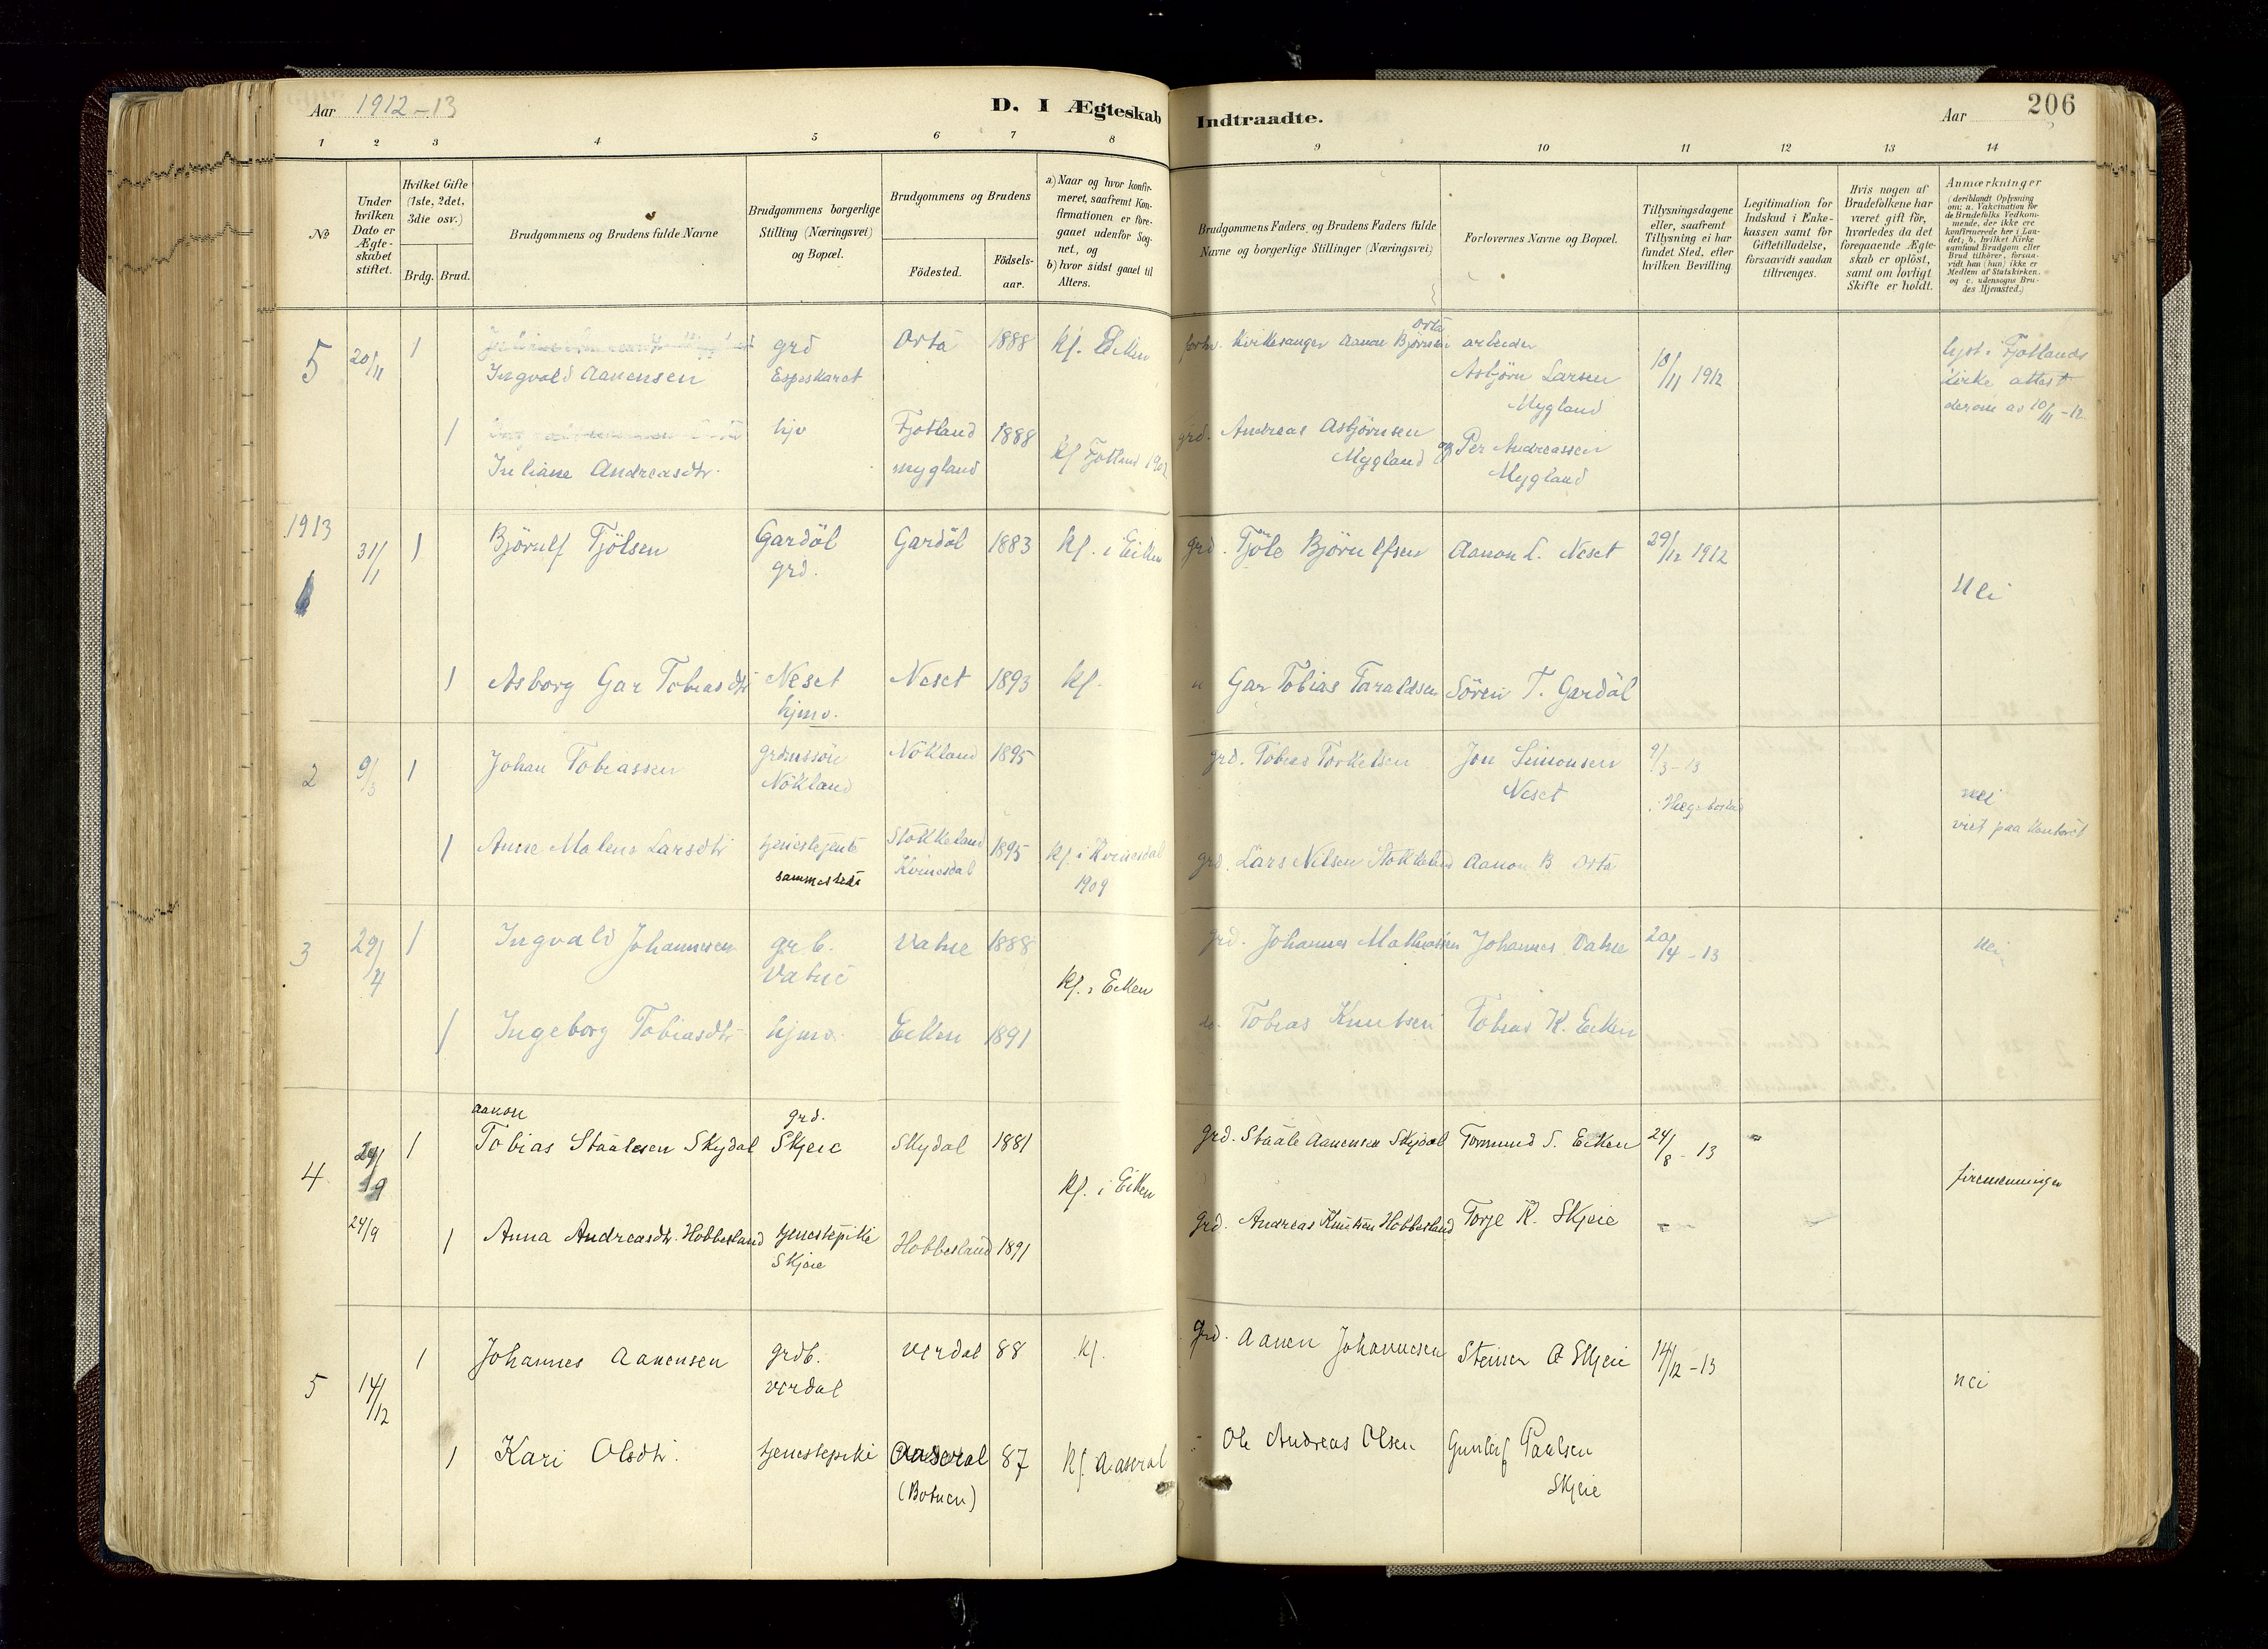 Aar 1912-13
D. I Ægteskab Indtraadte.
Aar
206
1 2 3 4 5 6 7 8 9 10 11 12 13 14
№
Under hvilken Dato er Ægte-skabet stiftet.
Hvilket Gifte (1ste, 2det, 3die osv.)
Brdg. Brud.
Brudgommens og Brudens fulde Navne
Brudgommens borgerlige Stilling (Næringsvei) og Bopæl.
Brudgommens og Brudens
Födested.
Födsels-aar.
a) Naar og hvor konfir-meret, saafremt Kon-firmationen er fore-gaaet udenfor Sog-net, og
b) hvor sidst gaaet til Alters.
Brudgommens Faders og Brudens Faders fulde Navne og borgerlige Stillinger (Næringsvei)
Forlovernes Navne og Bopæl.
Tillysningsdagene eller, saafremt Tillysning ei har fundet Sted, efter hvilken Bevilling.
Legitimation for Indskud i Enke-kassen samt for Giftetilladelse, forsaavidt saadan tiltrænges.
Hvis nogen af Brudefolkene har været gift för, hvorledes da det foregaaende Ægte-skab er oplöst, samt om lovligt Skifte er holdt.
Anmærkninger (deriblandt Oplysning om: a. Vakcination for de Brudefolks Vedkom-mende, der ikke ere konfirmerede her i Lan-det; b. hvilket Kirke samfund Brudgom eller Brud tilhörer, forsaa-vidt han (hun) ikke er Medlem af Statskirken. og c. udensogns Bru-des Hjemsted.)
5 20/11 1
Ingvald Aanensen
grd Espeskaret
Orta 1888 kf. Eiken
forhv. Kirkesanger Aanon Björnsen Orta
arbeider Asbjörn Larsen Mygland
10/11 1912
lyst i Fjotlands kirke attest derom av 10/11-12
1
Juliane Andreasdtr.
hjv
Fjotland mygland 1888 kf Fjotland 1902
grd. Andreas Asbjörnsen Mygland
og Per Andreassen Mygland
1913
1 31/1 1
Björnulf Tjölsen
Gardöl grd.
Gardöl 1883 kf. i Eiken
grd. Tjöle Björnulfsen
Aanon L. Neset
29/12 1912
Nei
1 Asborg Gar Tobiasdtr
Neset hjmv.
Neset 1893 kf.
" Gar Tobias Taraldsen
Sören T. Gardöl
2 9/3 1
Johan Tobiassen
grdmssön Nökland
Nökland 1895
grd. Tobias Torkelsen
Jon Simonsen Neset
9/3-13
i Hægebostad
nei
viet paa kontoret
1 Anne Malene Larsdtr
tjenestejente sammesteds
Stokkeland Kvinesdal 1895
kf. i Kvinesdal 1909
grd. Lars Nilsen Stokkeland
Aanon B Orta
3 29/4 1
Ingvald Johannesen
gr b. Vatne
Vatne 1888
kf. i Eiken
grd. Johannes Mathiassen
Johannes Vatne
20/4-13
Nei
1 Ingeborg Tobiasdtr
hjmv.
Eiken 1891
do. Tobias Knutsen
Tobias K. Eiken
4 24/9 1
Aanon
Tobias Staalesen Skydal
grd. Skjeie
Skydal 1881
kf. i Eiken
grd. Staale Aanensen Skydal
Tormund S. Eiken
24/8-13
firemenninger
24/9 1
Anna Andreasdtr. Hobbesland
tjenestepike Skjeie
Hobbesland 1891
grd. Andreas Knutsen Hobbesland
Torje K. Skjeie
5 14/12 1
Johannes Aanensen
grdb. verdal
verdal 88 kf.
Grd. Aanen Johannesen
Steiner A Skjeie
14/12-13
nei
1 Kari Olsdtr.
tjenestepike
Aaseral (Botnen) 87 kf. Aaseral
Ole Andreas Olsen
Gunluf Paulsen Skjeie